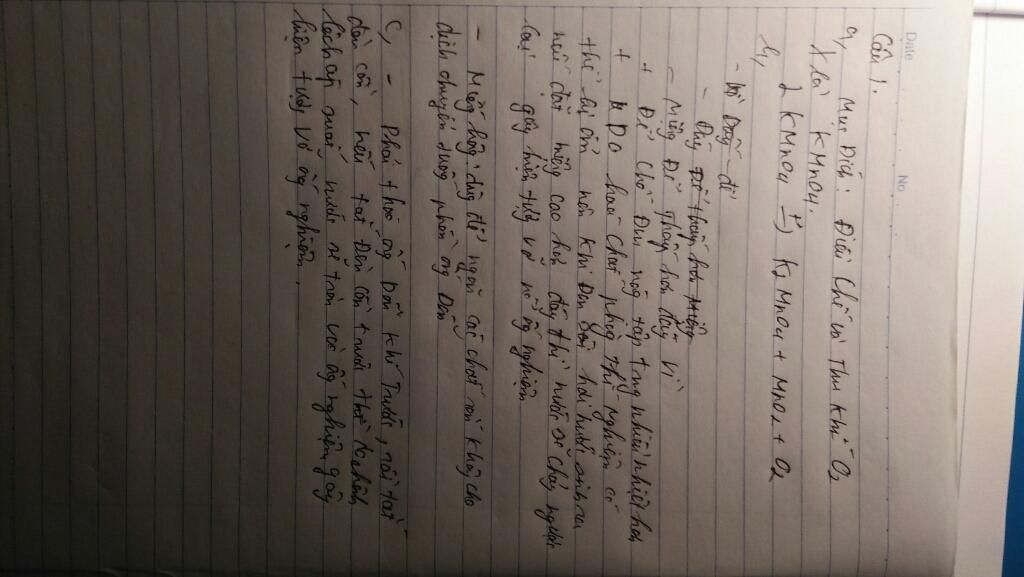 Date
No
Câu 1.
a, Mục Đích: Điều Chế và Thu Khí O2
X là KMnO4.
b, 2 KMnO4 t°→ K2MnO4 + MnO2 + O2
- Vì
- Miệng Để thấp hơn đáy vì
+ Để Cho Đun nóng tập trung nhiều nhiệt hơn
+ Do hoá chất phòng thí nghiệm có
thể bị ẩm nên khi Đun hơi nước sinh ra
nếu đặt miệng cao hơn đáy thì nước sẽ chảy ngược
lại gây hiện tượng vỡ ống nghiệm
- Miếng bông: dùng để ngăn các chất rắn không cho
dịch chuyển đường phần ống Dẫn
c, - Phải tháo ống Dẫn khí Trước, rồi tắt
đèn cồn, nếu tắt Đèn cồn trước thì
lệch áp suất nước sẽ tràn vào ống nghiệm gây
hiện tượng Vỡ ống nghiệm.